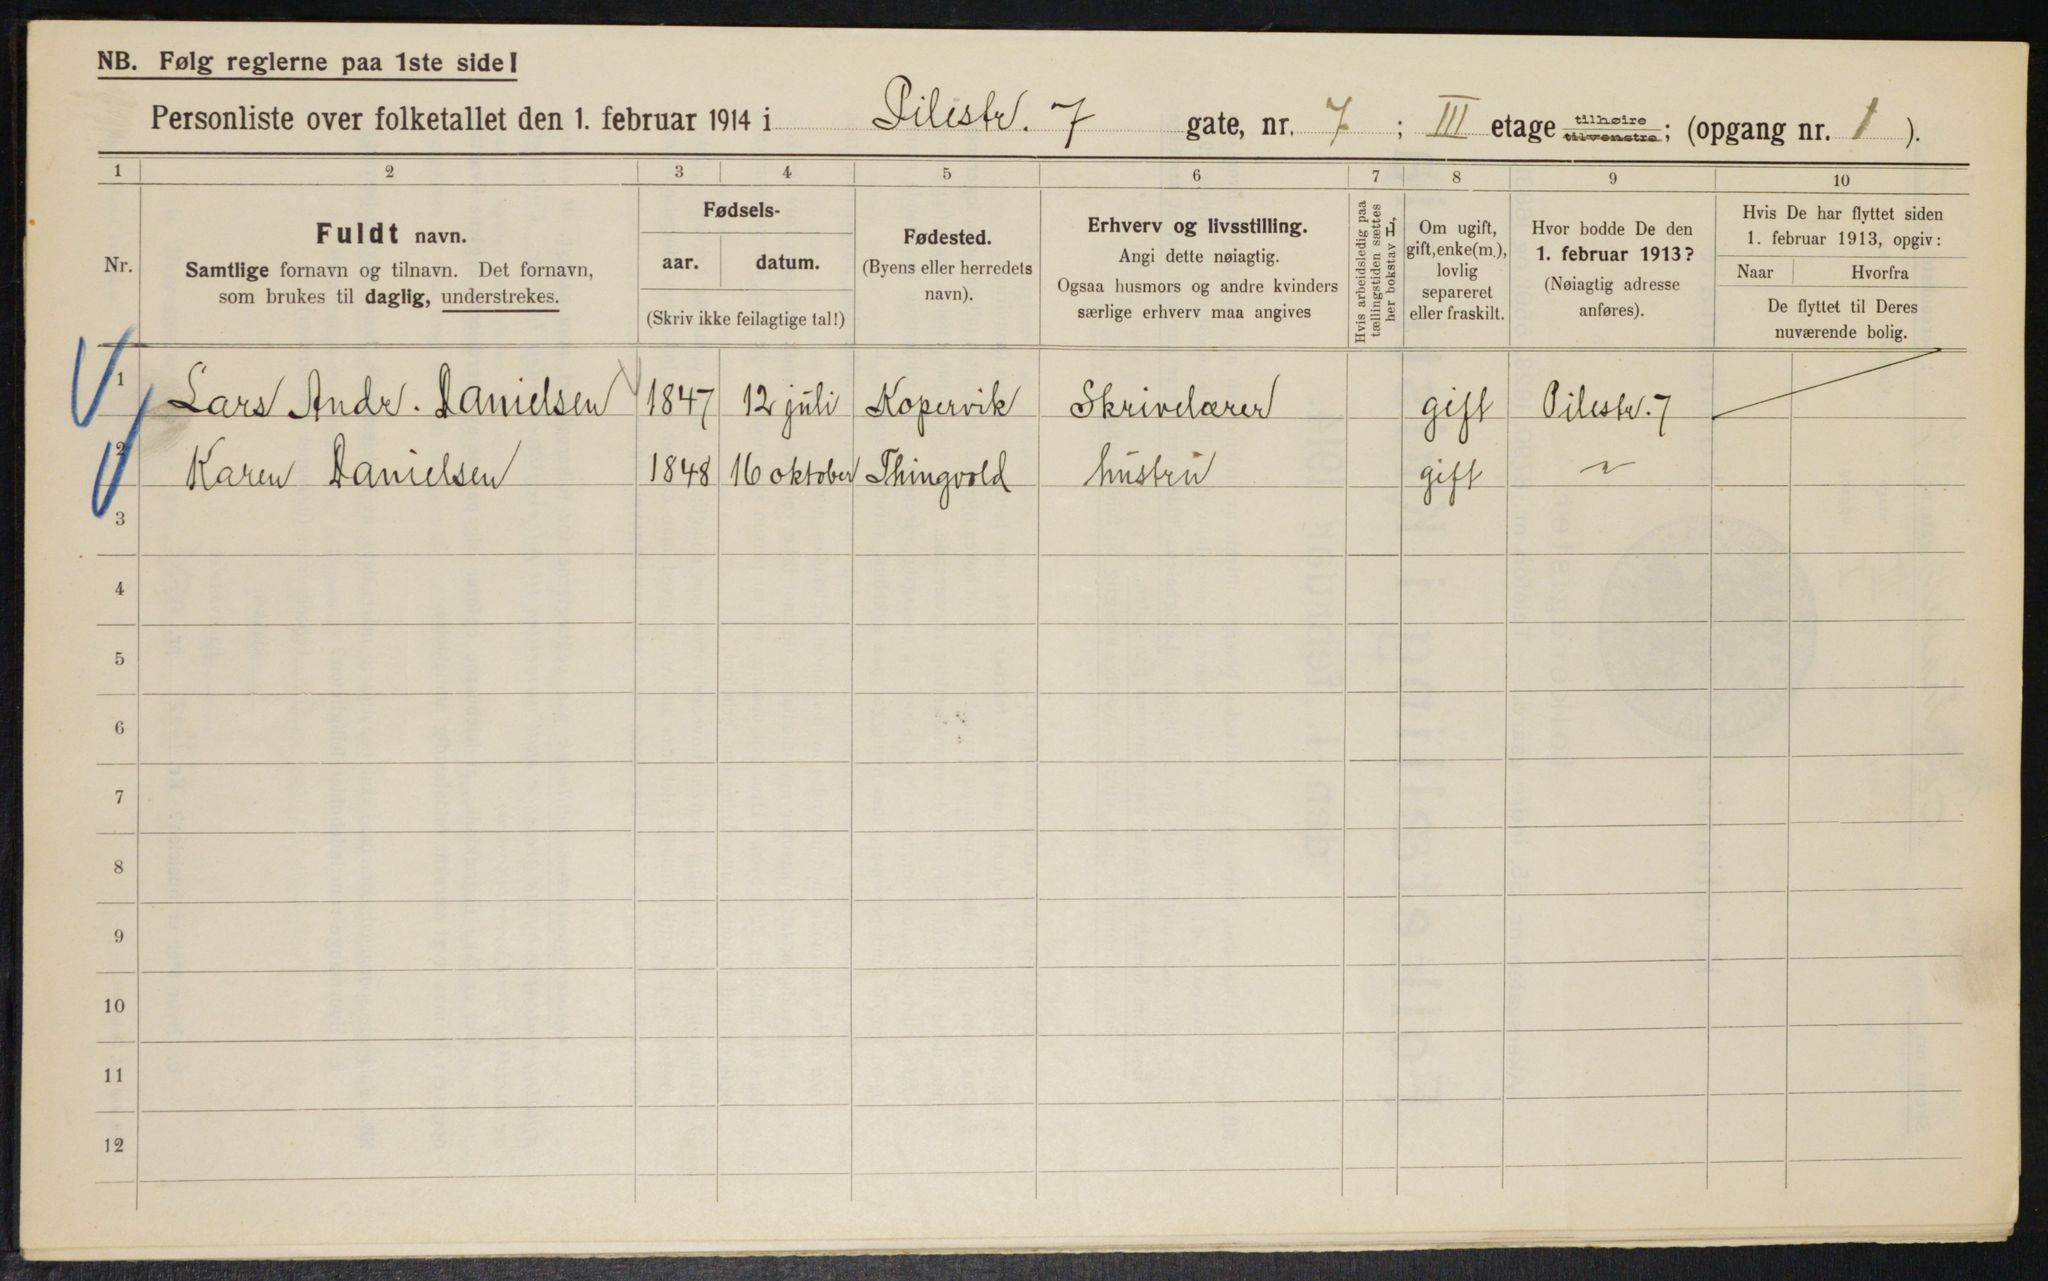 NB. Følg reglerne paa 1ste side!
Personliste over folketallet den 1. februar 1914 i Pilestr. 7 gate, nr. 7 ; III etage tilhøire tilvenstre; (opgang nr. 1 ).
1 2 3 4 5 6 7 8 9 10
Nr.
Fuldt navn.
Samtlige fornavn og tilnavn. Det fornavn,
som brukes til daglig, understrekes.
Fødsels-
aar. datum.
(Skriv ikke feilagtige tal!)
Fødested.
(Byens eller herredets
navn).
Erhverv og livsstilling.
Angi dette nøiagtig.
Ogsaa husmors og andre kvinders
særlige erhverv maa angives
Hvis arbeidsledig paa
tællingstiden sættes
her bokstav L,
Om ugift,
gift, enke(m.),
lovlig
separeret
eller fraskilt.
Hvor bodde De den
1. februar 1913?
(Nøiagtig adresse
anføres).
Hvis De har flyttet siden
1. februar 1913, opgiv:
Naar Hvorfra
De flyttet til Deres
nuværende bolig.
1 Lars Andr. Danielsen 1847 12 juli Kopervik Skrivelærer gift Pilestr. 7
2 Karen Danielsen 1848 16 oktober Thingvold hustru gift "
3
4
5
6
7
8
9
10
11
12